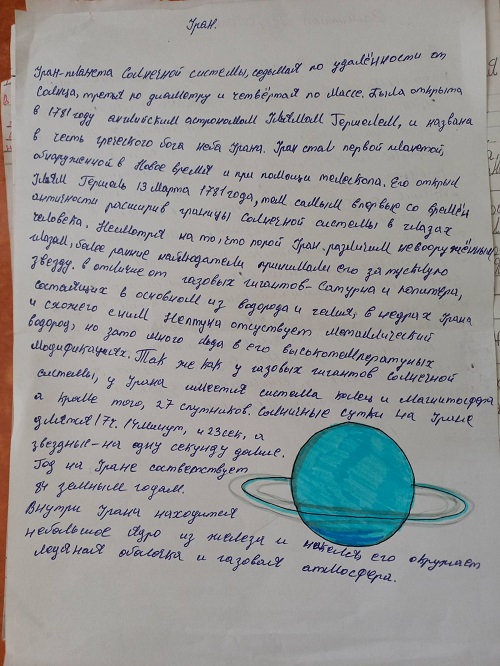 Уран.
Уран-планета Солнечной системы, седьмая по удалённости от
Солнца, третья по диаметру и четвёртая по массе. Была открыта
в 1781 году английским астрономом Уильямом Гершелем, и названа
в честь греческого бога неба Урана. Уран стал первой планетой,
обнаруженной в Новое время и при помощи телескопа. Его открыл
Уильям Гершель 13 марта 1781 года, тем самым впервые со времён
античности расширив границы Солнечной системы в глазах
человека. Несмотря на то, что порой Уран различим невооружённым
глазом, более ранние наблюдатели принимали его за тусклую
звезду. в отличие от газовых гигантов-Сатурна и юпитера,
состоящих в основном из водорода и гелия, в недрах Урана
и схожего с ним Нептуна отсуствует металлический
водород, но зато много льда в его высокотемпературных
модификациях. Так же как у газовых гигантов Солнечной
системы, у Урана имеется система колец и магнитосфера
а кроме того, 27 спутников. Солнечные сутки на Уране
длятся 17ч. 14минут, и 23сек, а
звёздные-на одну секунду дольше.
Год на Уране соответствует
84 земным годам.
Внутри Урана находится
небольшое ядро из железа и никеля, его окружает
ледяная оболочка и газовая атмосфера.